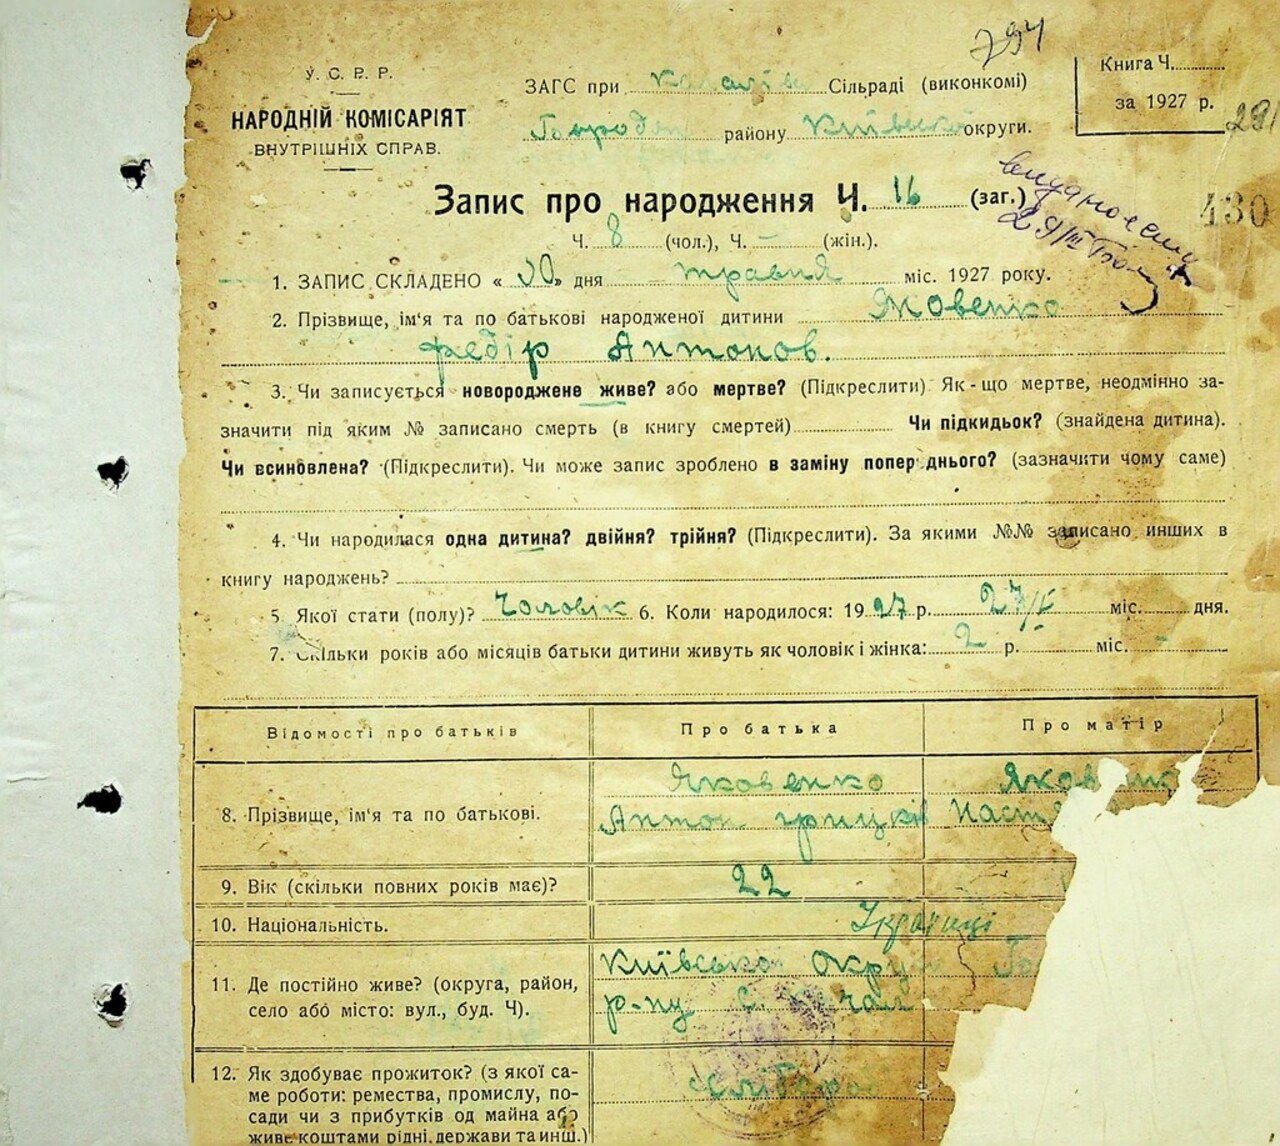 794
У. С. Р. Р.
НАРОДНІЙ КОМІСАРІЯТ
ВНУТРІШНІХ СПРАВ.
ЗАГС при Сільраді (виконкомі)
району Київської округи.
Книга Ч.
за 1927 р.
291
430
Запис про народження Ч. 16 (заг.)
29/III
Ч. 8 (чол.), Ч. – (жін.).
1. ЗАПИС СКЛАДЕНО « 30 » дня травня міс. 1927 року.
2. Прізвище, ім'я та по батькові народженої дитини Яковенко
Федір Антонов.
3. Чи записується новороджене живе? або мертве? (Підкреслити) Як-що мертве, неодмінно за-
значити під яким № записано смерть (в книгу смертей) Чи підкидьок? (знайдена дитина).
Чи всиновлена? (Підкреслити). Чи може запис зроблено в заміну попер днього? (зазначити чому саме)
4. Чи народилася одна дитина? двійня? трійня? (Підкреслити). За якими №№ записано инших в
книгу народжень?
5. Якої стати (полу)? Чоловік 6. Коли народилося: 1927 р. 27/V міс. дня.
7. Скільки років або місяців батьки дитини живуть як чоловік і жінка: 2 р. міс. -
Відомості про батьків Про батька Про матір
8. Прізвище, ім'я та по батькові.
Яковенко
Антон Грицків
9. Вік (скільки повних років має)? 22
10. Національність. Українці
11. Де постійно живе? (округа, район,
село або місто: вул., буд. Ч).
Київська Округ
р-ну с.
12. Як здобуває прожиток? (з якої са-
ме роботи: ремества, промислу, по-
сади чи з прибутків од майна або
живе коштами рідні, держави та инш.)